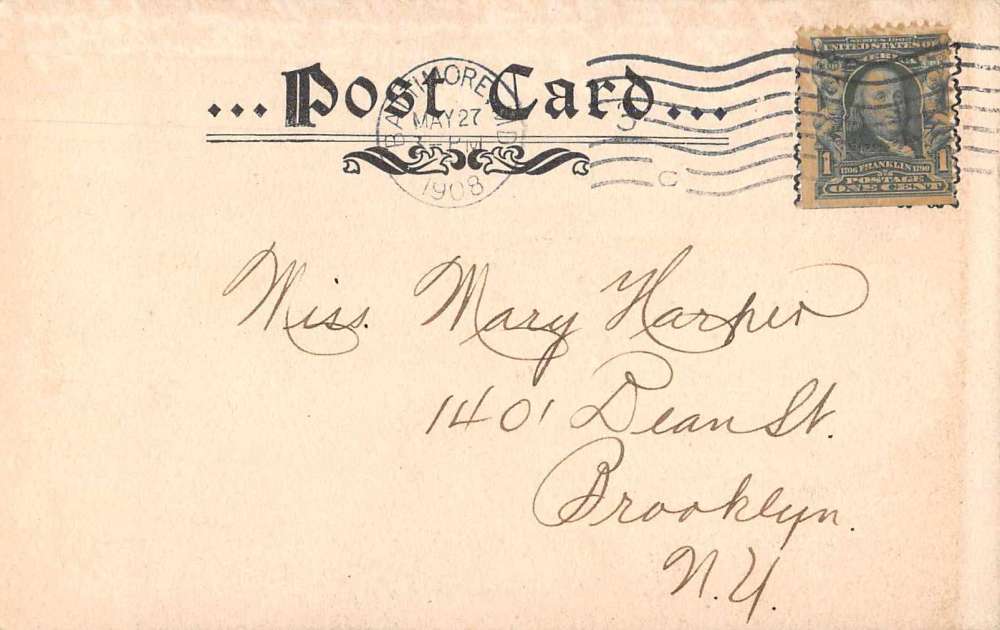 ...Post Card...
BALTIMORE, MD.
MAY 27
PM
1908
SERIES 1902
UNITED STATES OF AMERICA
1 1706 FRANKLIN 1790 1
POSTAGE
ONE CENT
Miss. Mary Harper
1401 Dean St.
Brooklyn.
N.Y.